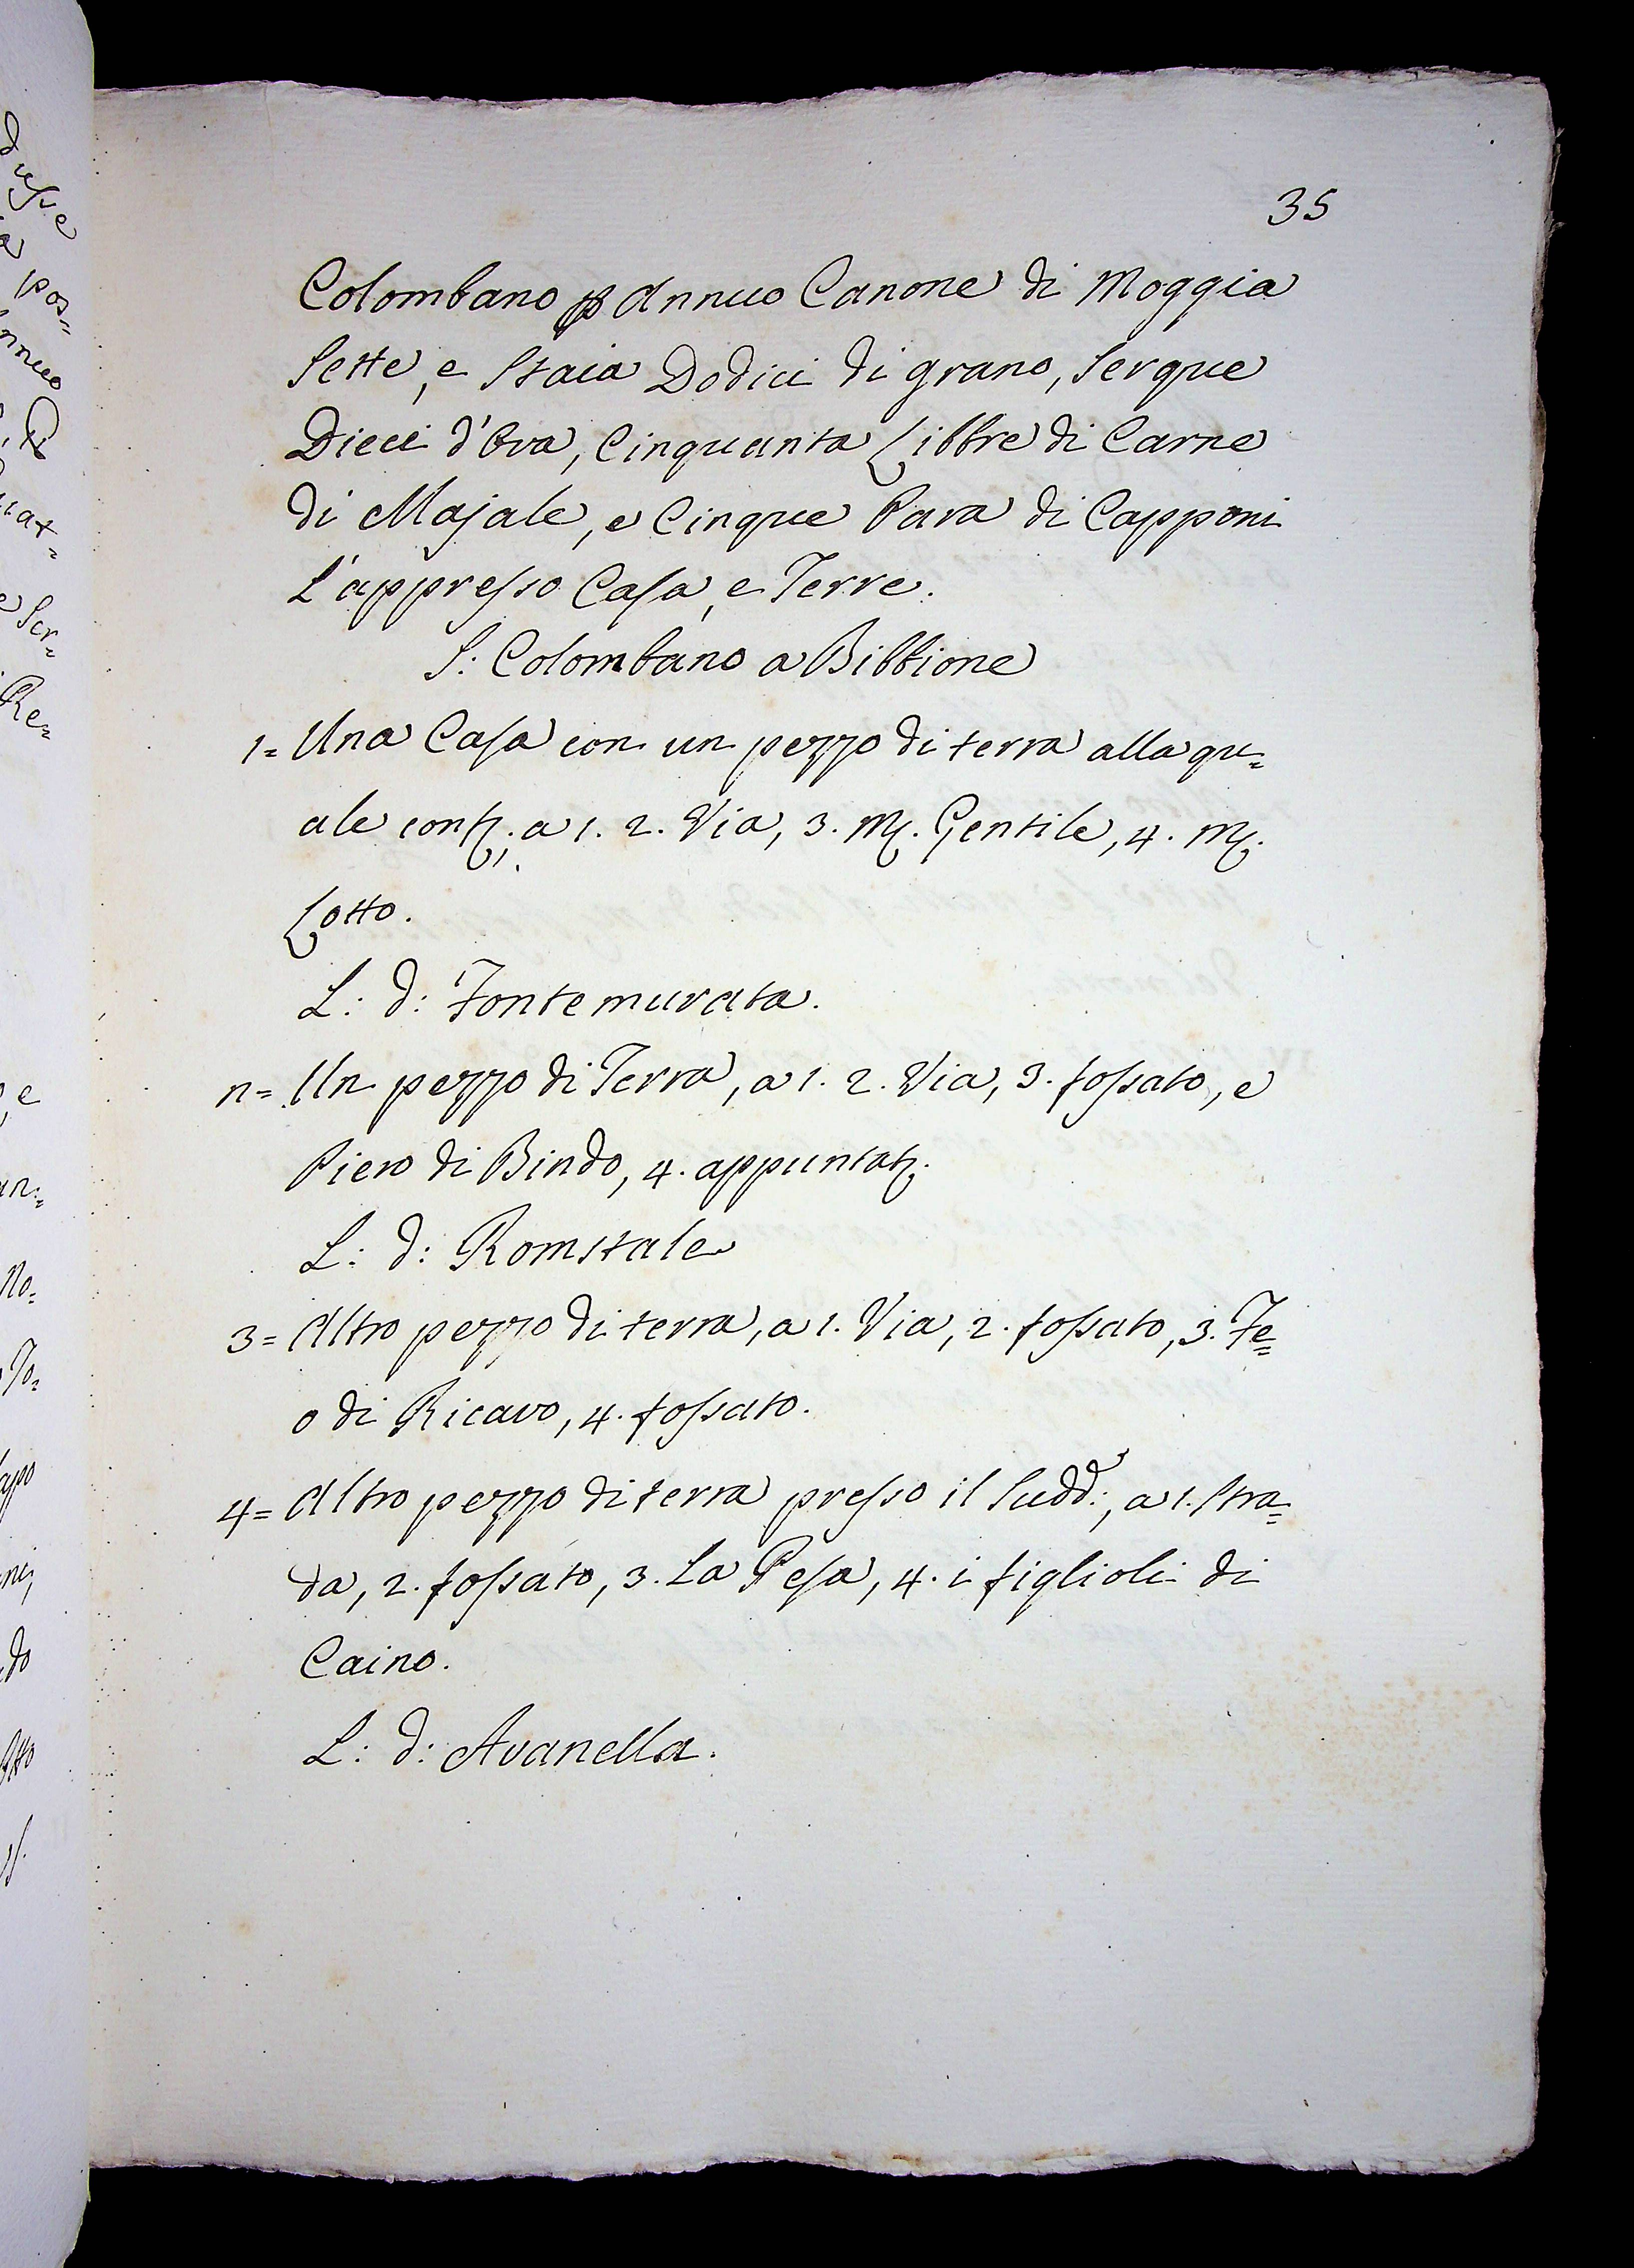 35
Colombano p Annuo Canone di Moggia
Sette, e Staia Dodici di grano, Serque
Dieci d'Ova, Cinquanta Libbre di Carne
di Majale, e Cinque Para di Capponi
L'appresso Casa, e Terre.
S: Colombano a Bibbione
1= Una Casa con un pezzo di terra alla qu=
ale conf. a 1. 2. Via, 3. M. Gentile, 4. M.
Lotto.
L: d: Fontemurata.
n= Un pezzo di Terra, a 1. 2. Via, 3. fossato, e
Piero di Bindo, 4. appuntat.
L: d: Romitale
3= Altro pezzo di terra, a 1. Via, 2. fossato, 3. Fe=
o di Ricavo, 4. fossato.
4= Altro pezzo di terra presso il Sudd:, a 1. Stra=
da, 2. fossato, 3. La Pesa, 4. i figlioli di
Caino.
L: d: Avanella.